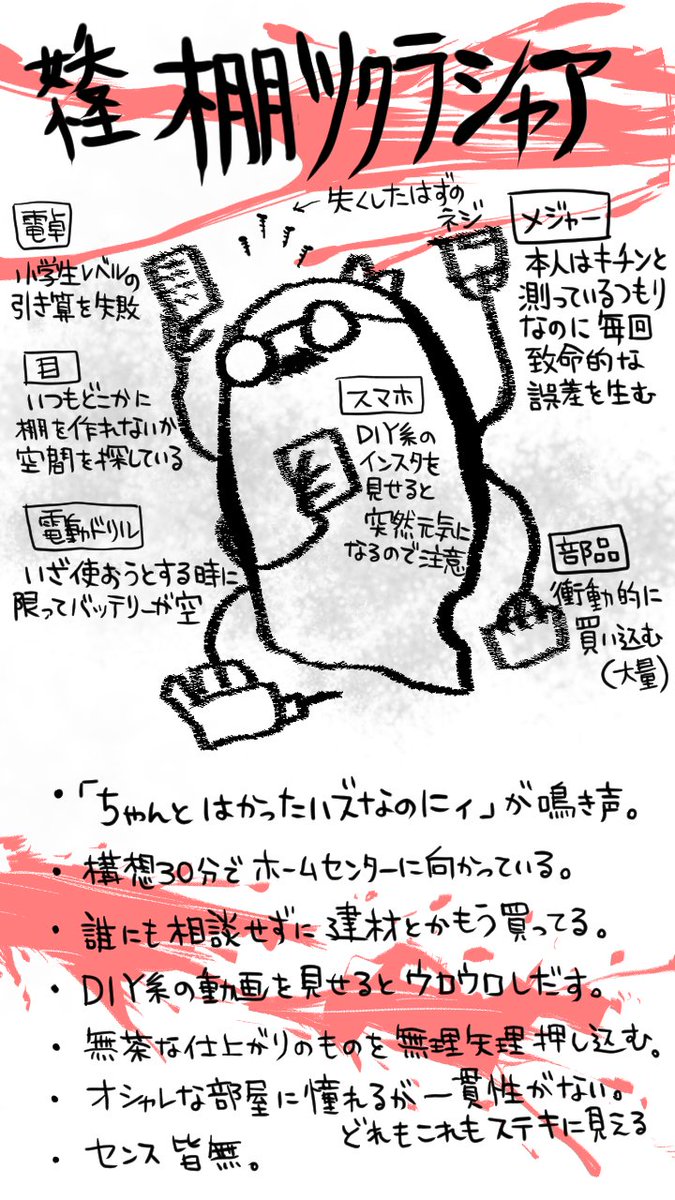 棚ツクラシャア
←失くしたはずの
ネジ
電卓
小学生レベルの
引き算を失敗
メジャー
本人はキチンと
測っているつもり
なのに毎回
致命的な
誤差を生む
目
いつもどこかに
棚を作れないか
空間を探している
スマホ
DIY系の
インスタを
見せると
突然元気に
なるので注意
電動ドリル
いざ使おうとする時に
限ってバッテリーが空
部品
衝動的に
買い込む
(大量)
・「ちゃんとはかったハズなのにィ」が鳴き声。
・構想30分でホームセンターに向かっている。
・誰にも相談せずに建材とかもう買ってる。
・DIY系の動画を見せるとウロウロしだす。
・無茶な仕上がりのものを無理矢理押し込む。
・オシャレな部屋に憧れるが一貫性がない。
どれもこれもステキに見える
・センス皆無。